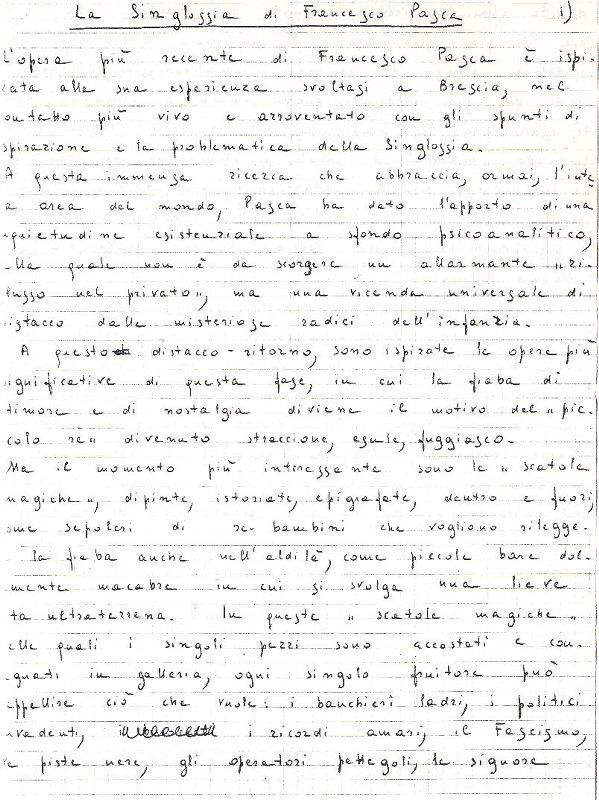 La Singlossia di Francesco Pasca 1)
L'opera più recente di Francesco Pasca è ispi-
rata alla sua esperienza svoltasi a Brescia, nel
ontatto più vivo e arroventato con gli spunti di
spirazione e la problematica della Singlossia.
A questa immensa ricerca che abbraccia, ormai, l'inte
a area del mondo, Pasca ha dato l'apporto di una
quietudine esistenziale a sfondo psicoanalitico,
lla quale non è da scorgere un allarmante "ri-
lusso nel privato", ma una vicenda universale di
istacco dalle misteriose radici dell'infanzia.
A questo distacco-ritorno, sono ispirate le opere più
ignificative di questa fase, in cui la fiaba di
timore e di nostalgia diviene il motivo del "pic-
colo re" divenuto straccione, esule, fuggiasco.
Ma il momento più interessante sono le "scatole
magiche", dipinte, istoriate, epigrafate, dentro e fuori,
ome sepolcri di re-bambini che vogliono rilegge-
la fiaba anche nell'aldilà, come piccole bare dol-
mente macabre in cui si svolga una lieve
ta ultraterrena. In queste "scatole magiche"
elle quali i singoli pezzi sono accostati e con-
guati in galleria, ogni singolo fruitore può
eppellire ciò che vuole: i banchieri ladri, i politici
vadenti, i ricordi amari, il Fascismo,
e piste nere, gli operatori pettegoli, le signore